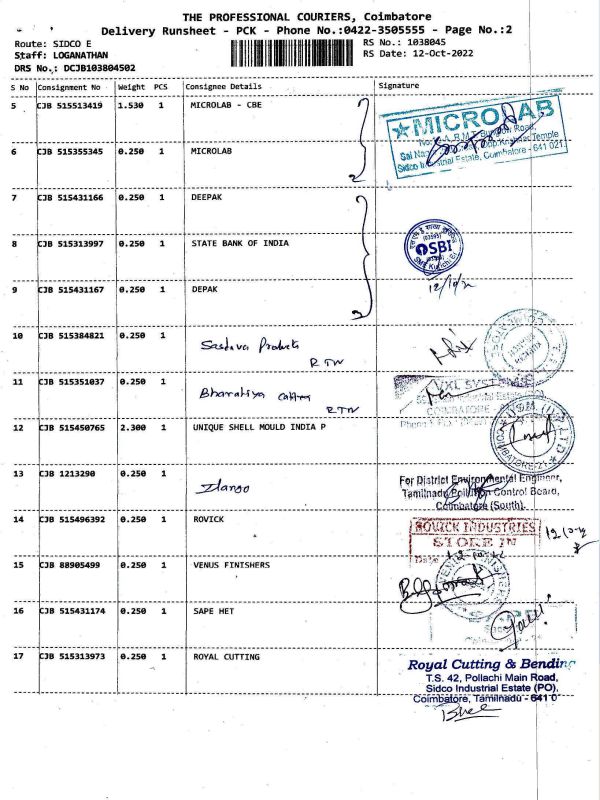 THE PROFESSIONAL COURIERS, Coimbatore
Delivery Runsheet - PCK - Phone No.:0422-3505555 - Page No.:2
Route: SIDCO E
RS No.: 1038045
Staff: LOGANATHAN
RS Date: 12-Oct-2022
DRS No.: DCJB103804502
S No Consignment No Weight PCS Consignee Details Signature
5 CJB 515513419 1.530 1 MICROLAB - CBE
MICROLAB
6 CJB 515355345 0.250 1 MICROLAB
Sidco Industrial Estate, Coimbatore - 641 021.
7 CJB 515431166 0.250 1 DEEPAK
8 CJB 515313997 0.250 1 STATE BANK OF INDIA
SBI
9 CJB 515431167 0.250 1 DEPAK
10 CJB 515384821 0.250 1
Products
RTN
11 CJB 515351037 0.250 1
Bharatiya
RTN
COIMBATORE
12 CJB 515450765 2.300 1 UNIQUE SHELL MOULD INDIA P
13 CJB 1213290 0.250 1 Ilango
For District Environmental Engineer,
Tamilnadu Pollution Control Board,
Coimbatore (South).
14 CJB 515496392 0.250 1 ROVICK
ROVICK INDUSTRIES
STORE IN
Date
15 CJB 88905499 0.250 1 VENUS FINISHERS
16 CJB 515431174 0.250 1 SAPE HET
17 CJB 515313973 0.250 1 ROYAL CUTTING
Royal Cutting & Bending
T.S. 42, Pollachi Main Road,
Sidco Industrial Estate (PO),
Coimbatore, Tamilnadu - 641 0